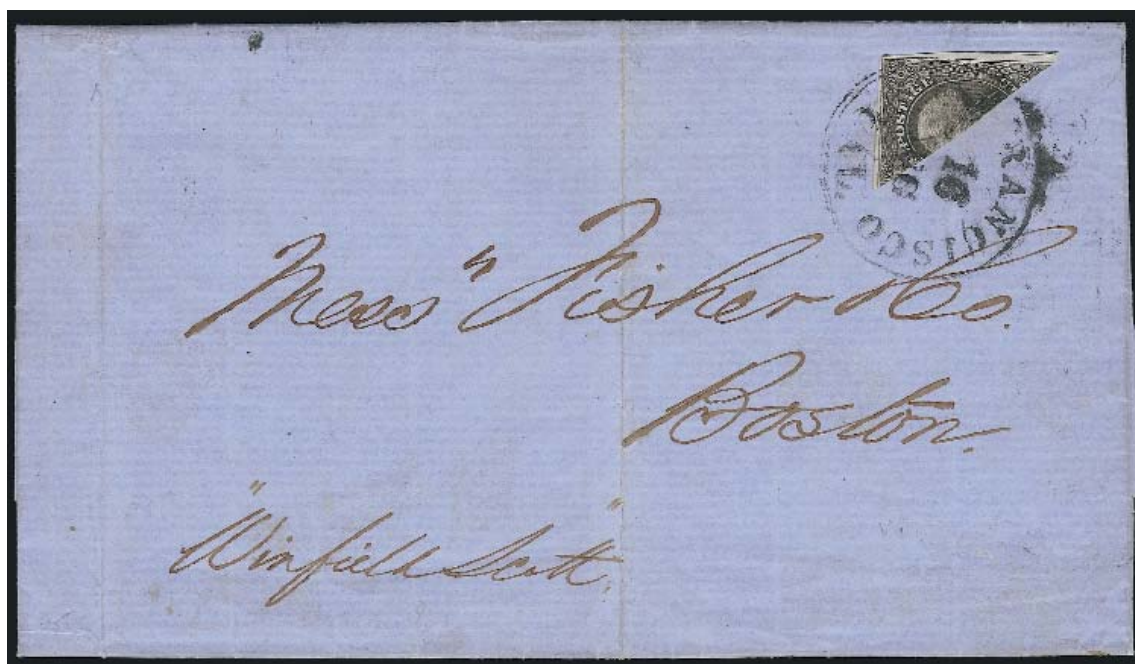 POSTAGE
FRANCISCO
16
Mess" Fisher & Co.
Boston.
"Winfield Scott"